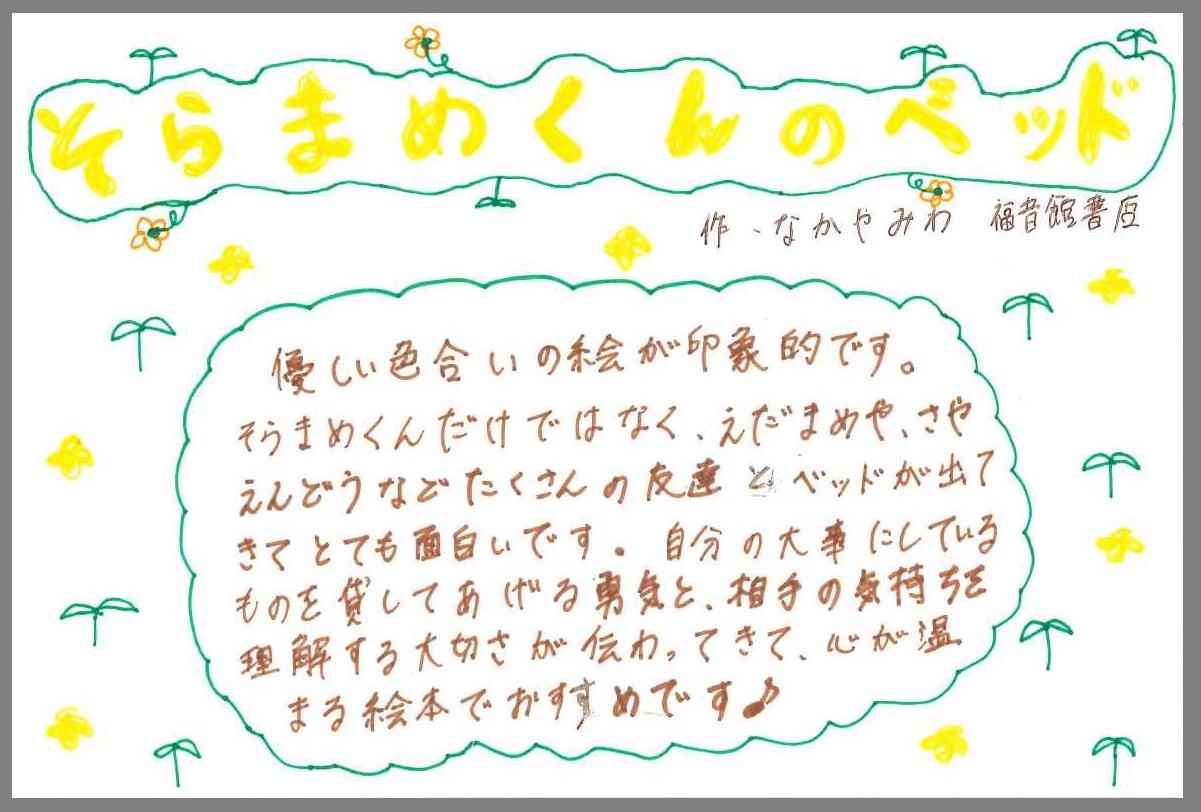 そらまめくんのベッド
作、なかやみわ 福音館書店
優しい色合いの絵が印象的です。
そらまめくんだけではなく、えだまめや、さや
えんどうなどたくさんの友達とベッドが出て
きてとても面白いです。自分の大事にしている
ものを貸してあげる勇気と、相手の気持ちを
理解する大切さが伝わってきて、心が温
まる絵本でおすすめです♪